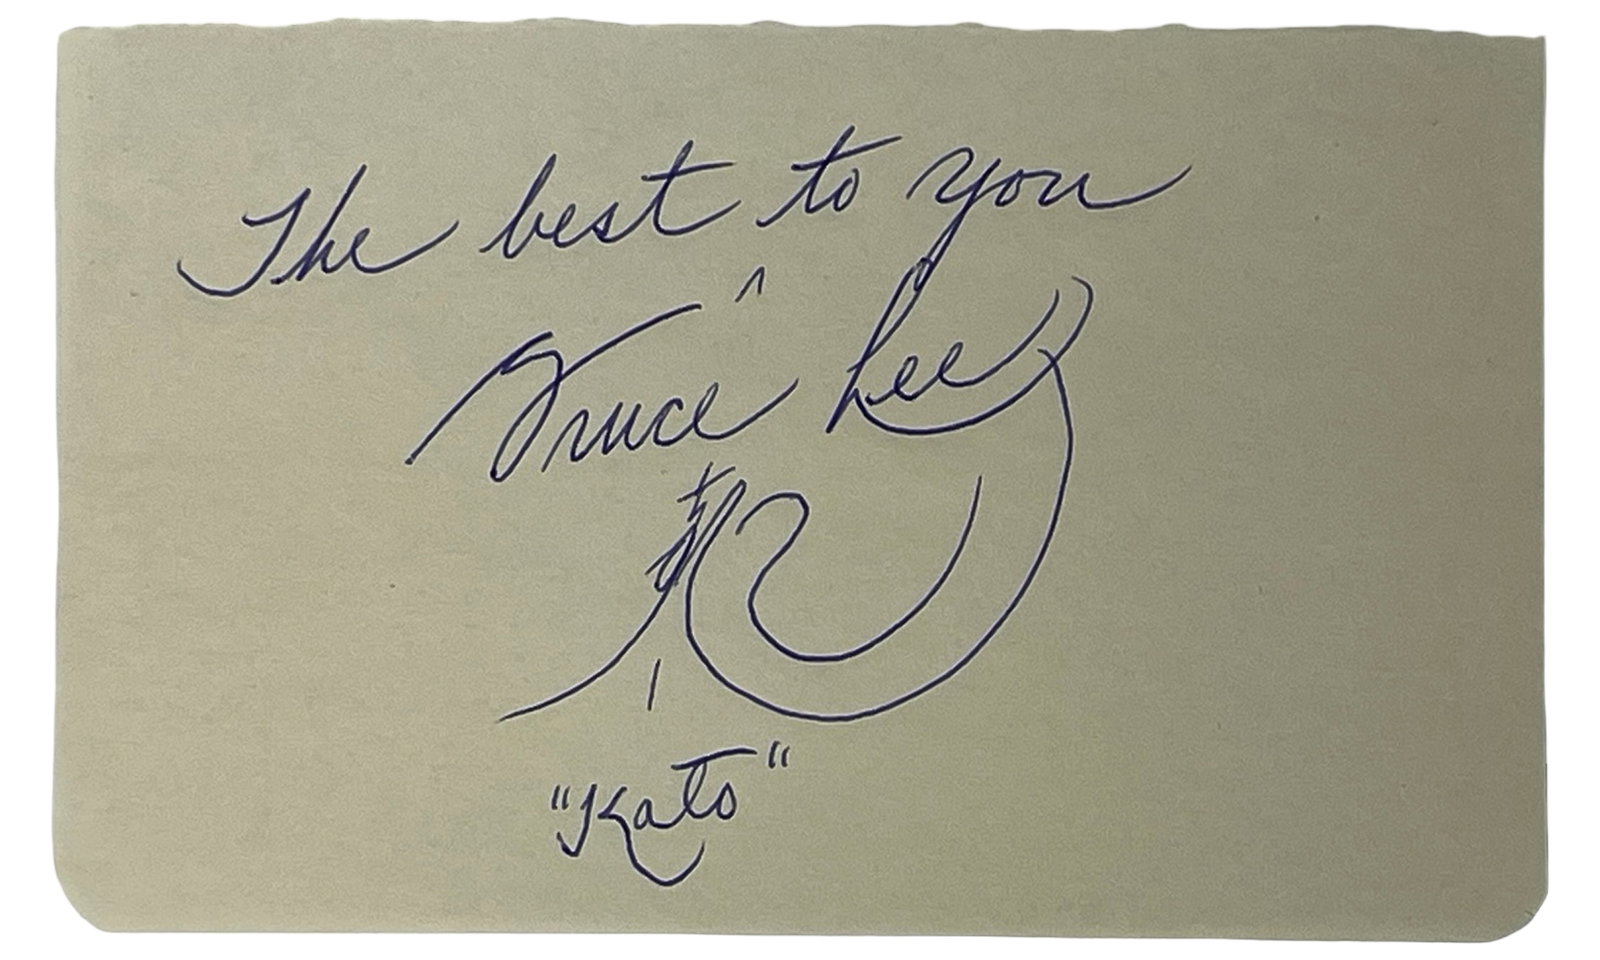 The best to you
Bruce Lee
"Kato"